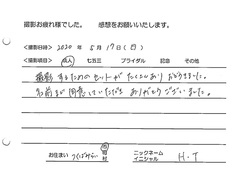 撮影お疲れ様でした。 感想をお願いいたします。
<撮影日時> 2020 年 5 月 17 日 (日)
<撮影項目> 成人 七五三 ブライダル 記念 その他
撮影するためのセットがたくさんあり おどろきました。
名前まで用意していただき ありがとうございました。
お住まい つくばみらい 市 町 村 ニックネーム イニシャル H.T